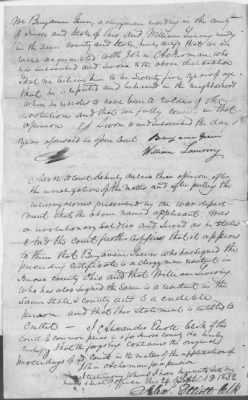 We Benjamin Green, a clergyman residing in the county
of Knox and State of Ohio and William Lawrey residing
in the same county and state, hereby certify that we are
well acquainted with John Cheerman who
has subscribed and sworn to the above declaration
that we believe him to be Seventy five years of age
that he is reputed and believed in the neighborhood
where he resides to have been a soldier of the
revolution and that we fully concur in that
opinion Sworn and subscribed the day &
year aforesaid in open Court
William Lawrey
And the court do hereby declare their opinion, after
the investigation of the matter and after putting the
interrogatories prescribed by the war depart-
ment, that the above named applicant was
a revolutionary soldier and served as he states
And the Court further certifies that it appears
to them that Benjamin Green who has signed the
preceding certificate is a clergyman resident in
Knox county Ohio and that William Lawrey
who has also signed the same is a resident in the
same State & county and is a credible
person and that their statement is entitled to
credit — I Alexander Elliott clerk of the
court of common pleas of Knox county do hereby
certify that the foregoing contains the original
proceedings of said Court in the matter of the application of
John
for a pension
In testimony whereof I have hereunto set my
hand & seal of office this 24 Septr. AD 1832
Alexr. Elliott Clk